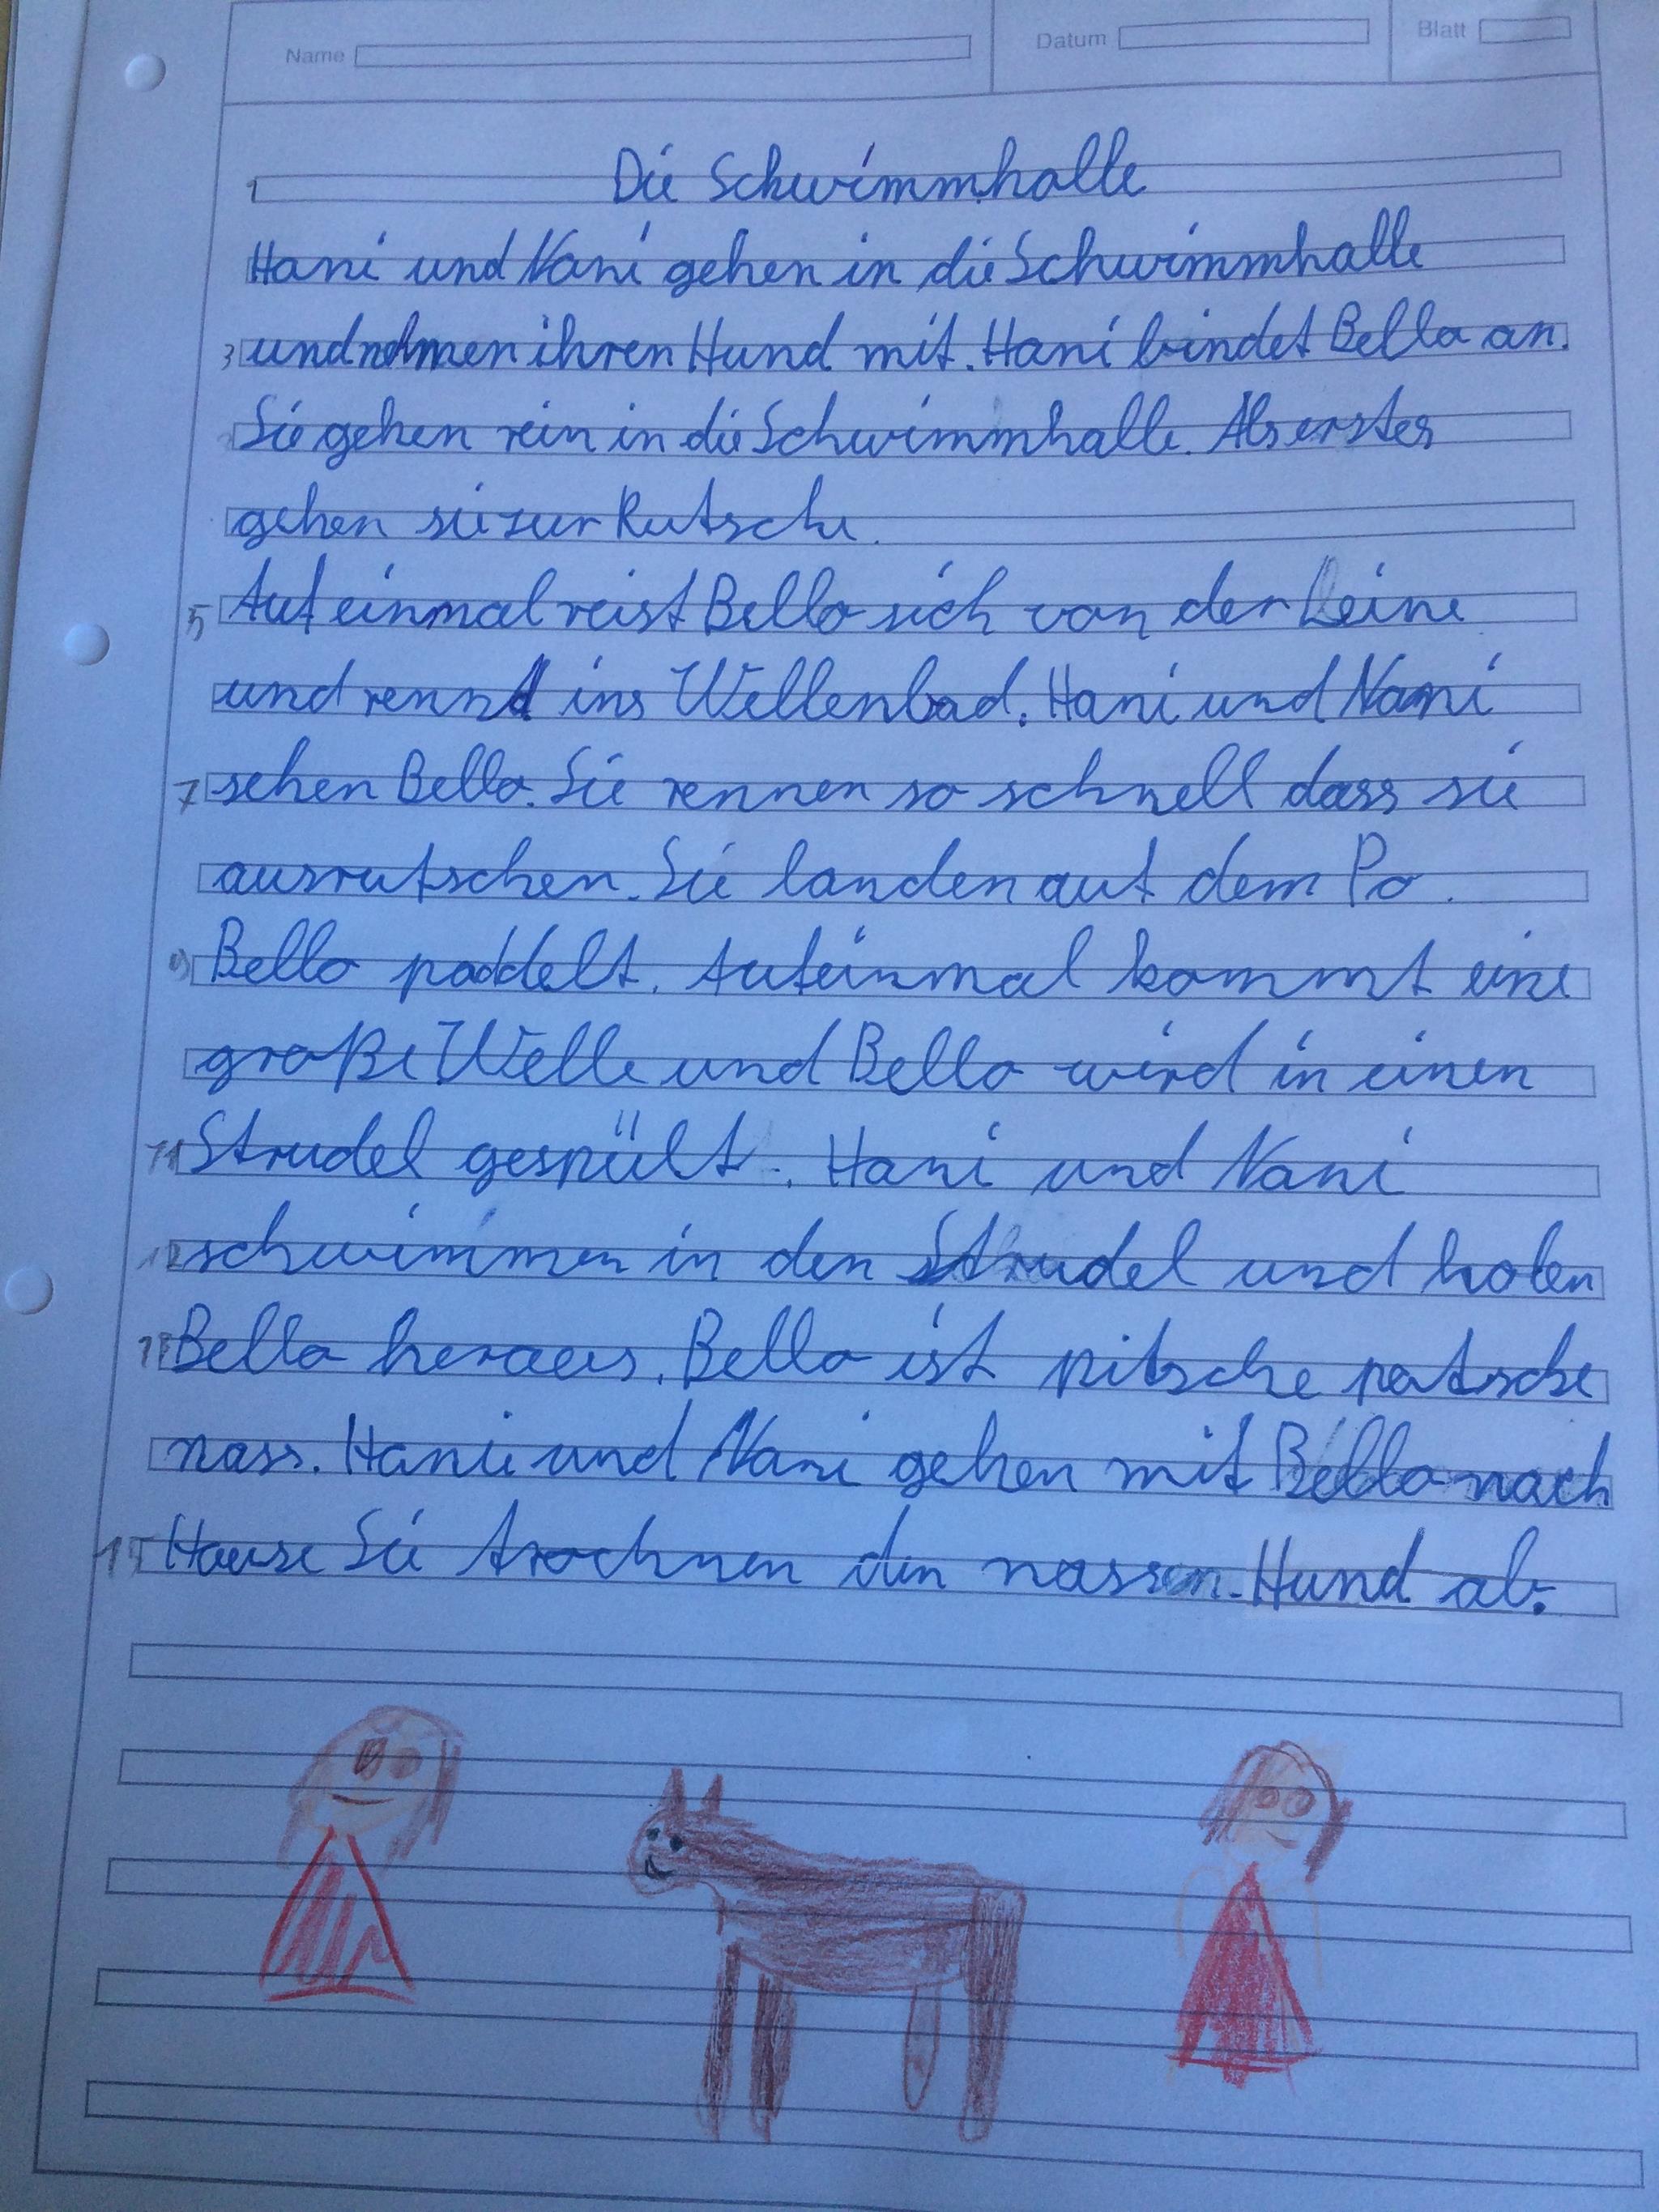 Name
Datum
Blatt
1 Die Schwimmhalle
Hani und Nani gehen in die Schwimmhalle
3 und nehmen ihren Hund mit. Hani bindet Bella an.
Sie gehen rein in die Schwimmhalle. Als erstes
gehen sie zur Rutsche.
5 Auf einmal reist Bella sich von der Leine
und rennd ins Wellenbad. Hani und Nani
7 sehen Bella. Sie rennen so schnell dass sie
ausrutschen. Sie landen auf dem Po.
9 Bella paddelt. Aufeinmal kommt eine
große Welle und Bella wird in einen
11 Strudel gespült. Hani und Nani
12 schwimmen in den Strudel und holen
Bella heraus. Bella ist pitsche patsche
nass. Hani und Nani gehen mit Bella nach
15 Hause Sie trochnen den nassen Hund ab.